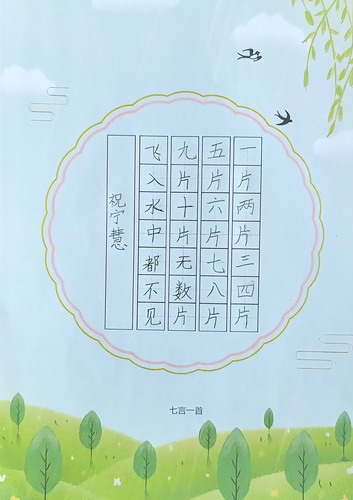 一片两片三四片
五片六片七八片
九片十片无数片
飞入水中都不见
祝宁慧
七言一首